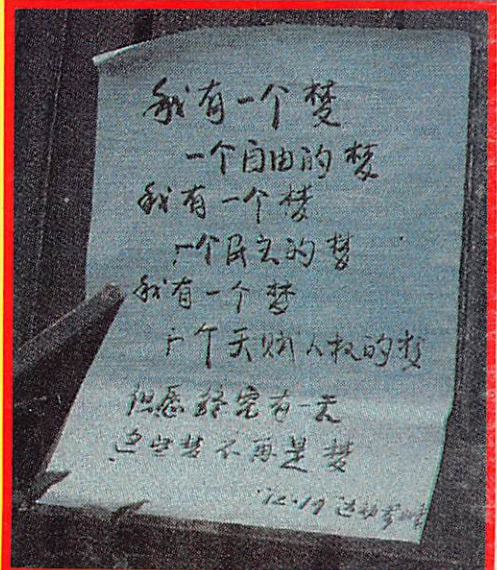 我有一个梦
一个自由的梦
我有一个梦
一个民主的梦
我有一个梦
一个天赋人权的梦
但愿终究有一天
这些梦不再是梦